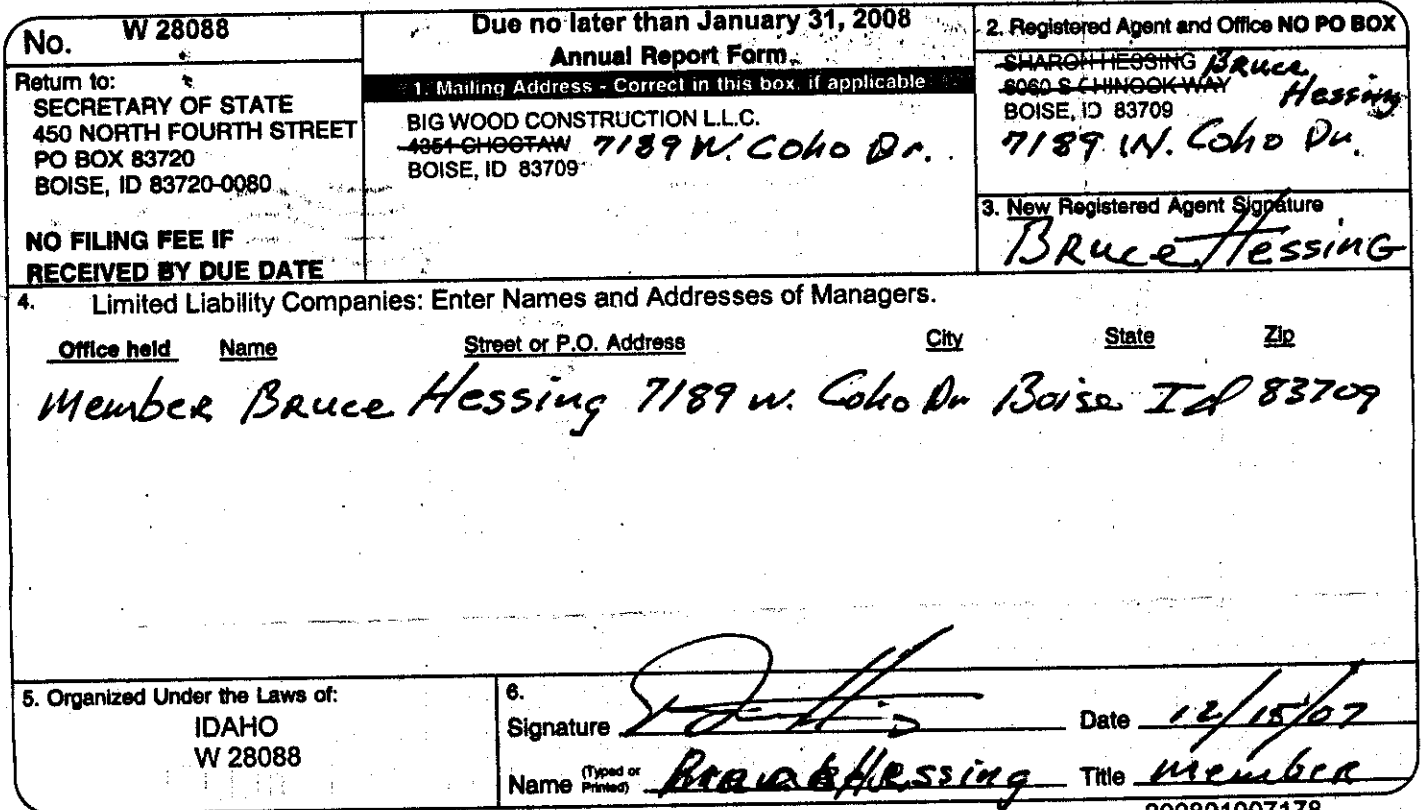 No. W 28088
Return to:
SECRETARY OF STATE
450 NORTH FOURTH STREET
PO BOX 83720
BOISE, ID 83720-0080
NO FILING FEE IF
RECEIVED BY DUE DATE
Due no later than January 31, 2008
Annual Report Form
1. Mailing Address - Correct in this box, if applicable
BIG WOOD CONSTRUCTION L.L.C.
4351 CHOCTAW 7189 W. Coho Dr.
BOISE, ID 83709
2. Registered Agent and Office NO PO BOX
SHARON HESSING Bruce
6060 S CHINOOK WAY Hessing
BOISE, ID 83709
7189 W. Coho Dr.
3. New Registered Agent Signature
Bruce Hessing
4. Limited Liability Companies: Enter Names and Addresses of Managers.
Office held Name Street or P.O. Address City State Zip
Member Bruce Hessing 7189 W. Coho Dr Boise Id 83709
5. Organized Under the Laws of:
IDAHO
W 28088
6.
Signature Date 12/15/07
Name (Typed or Printed) Hessing Title member